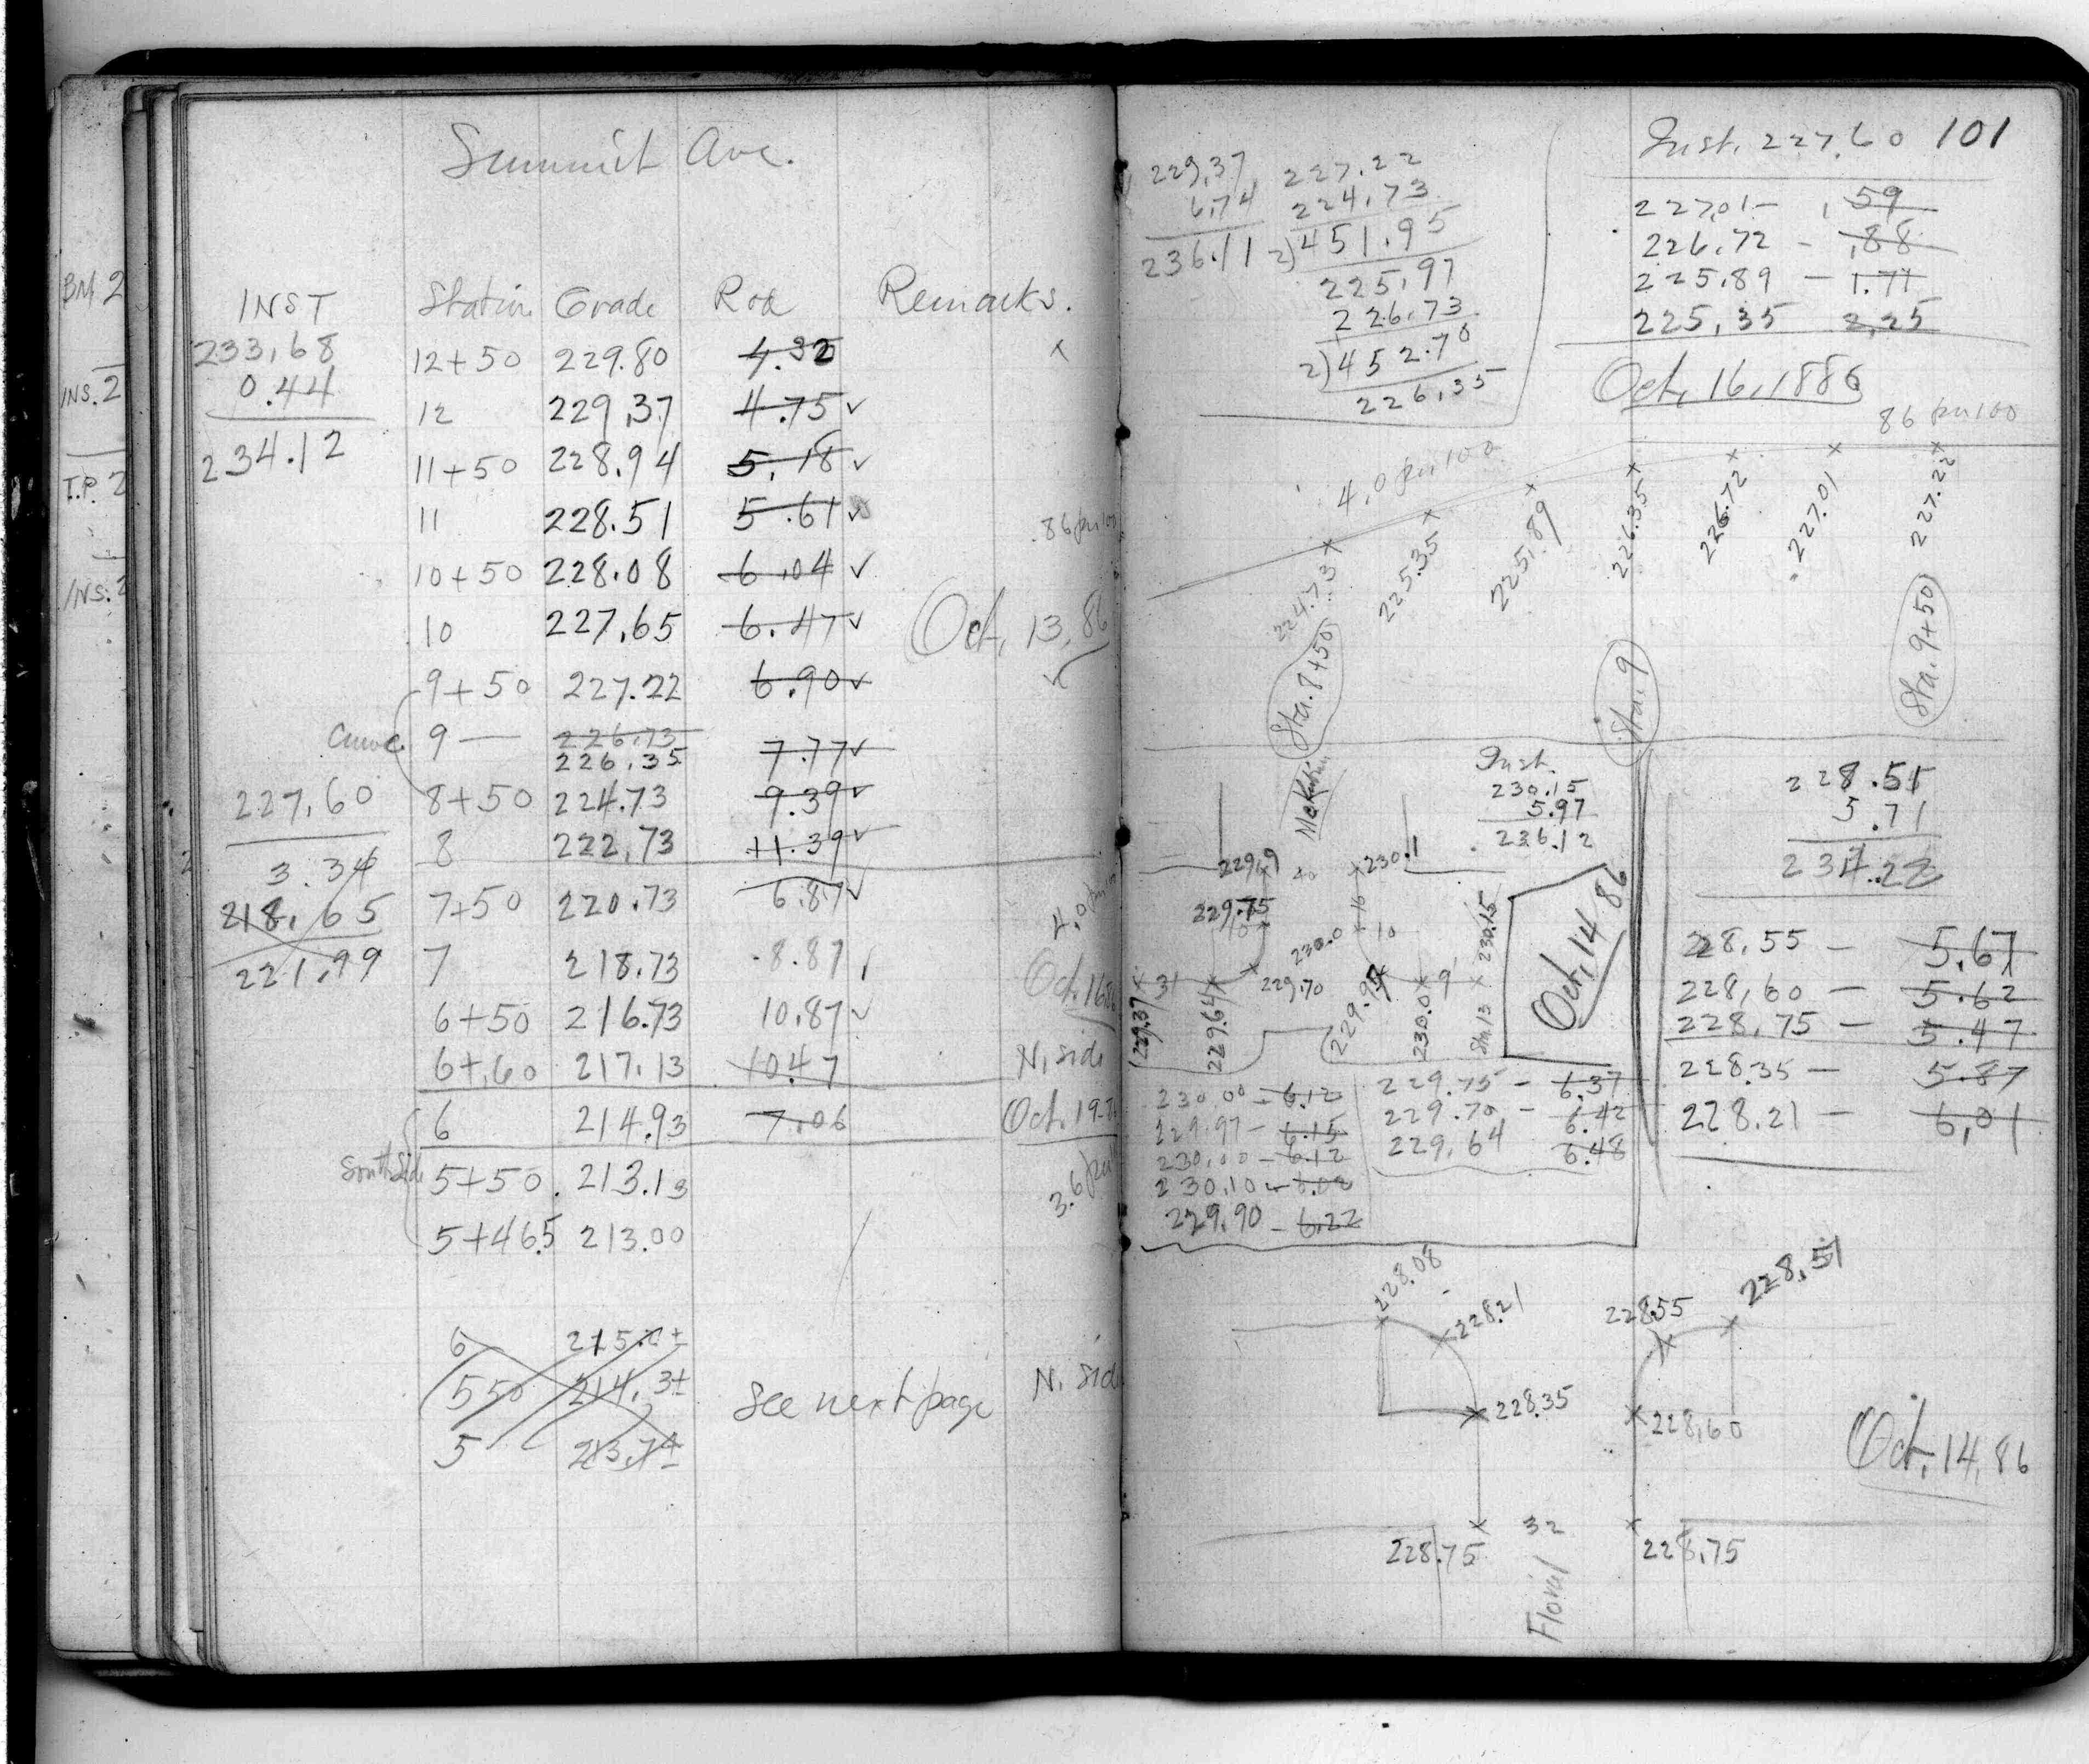 Summit Ave.
INST Station Grade Rod Remarks.
233.68 12+50 229.80 4.32 x
0.44
12 229.37 4.75 ✓
234.12 11+50 228.94 5.18 ✓
11 228.51 5.61 ✓
.86 per 100
10+50 228.08 6.04 ✓
10 227.65 6.47 ✓ Oct. 13, 86
9+50 227.22 6.90 ✓ ✓
Curve 9 — 226.73
226.35 7.77 ✓
227.60 8+50 224.73 9.39 ✓
8 222.73 11.39 ✓
3.34
218.65 7+50 220.73 6.87 ✓
221.99 7 218.73 8.87
Oct. 16 86
6+50 216.73 10.87 ✓
6+.60 217.13 10.47 N. side
6 214.93 7.06 Oct. 19-
South Side 5+50 213.13
5+46.5 213.00
6 215.0±
550 214.3± See next page N. sid
5 213.7±
BM. 2
INS. 2
T.P. 2
INS. 2
101
Inst. 227.60
229.37 227.22
6.74 224.73
236.11 2)451.95
225.97
226.73
2)452.70
226.35
227.01 — .59
226.72 — .88
225.89 — 1.71
225.35 2.25
Oct. 16, 1886
86 per 100
4.0 per 100
224.73 225.35 225.89 226.35 226.72 227.01 227.22
Sta. 8+50 Sta. 9 Sta. 9+50
Inst.
230.15
5.97
236.12
229.9 40 230.1
229.75 16
10 230.0 10 230.15
31 229.70 9
229.37 229.64 229.97 230.0 Sta 13
Oct. 14 86
230.00 — 6.12
229.97 — 6.15
230.00 — 6.12
230.10 — 6.02
229.90 — 6.22
229.75 — 6.37
229.70 — 6.42
229.64 6.48
228.51
5.71
234.22
228.55 — 5.67
228.60 — 5.62
228.75 — 5.47
228.35 — 5.87
228.21 — 6.01
228.08 228.21 228.55 228.51
228.35 228.60
Oct. 14, 86
228.75 32 228.75
Floral